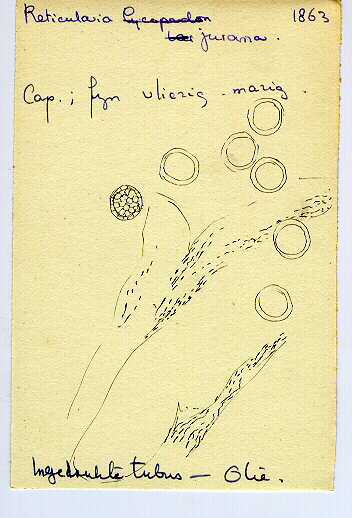 Reticularia Lycoperdon 1863
jurana.
Cap.; fyn vliezig - mazig.
Ingedrukte tubus — Olie.